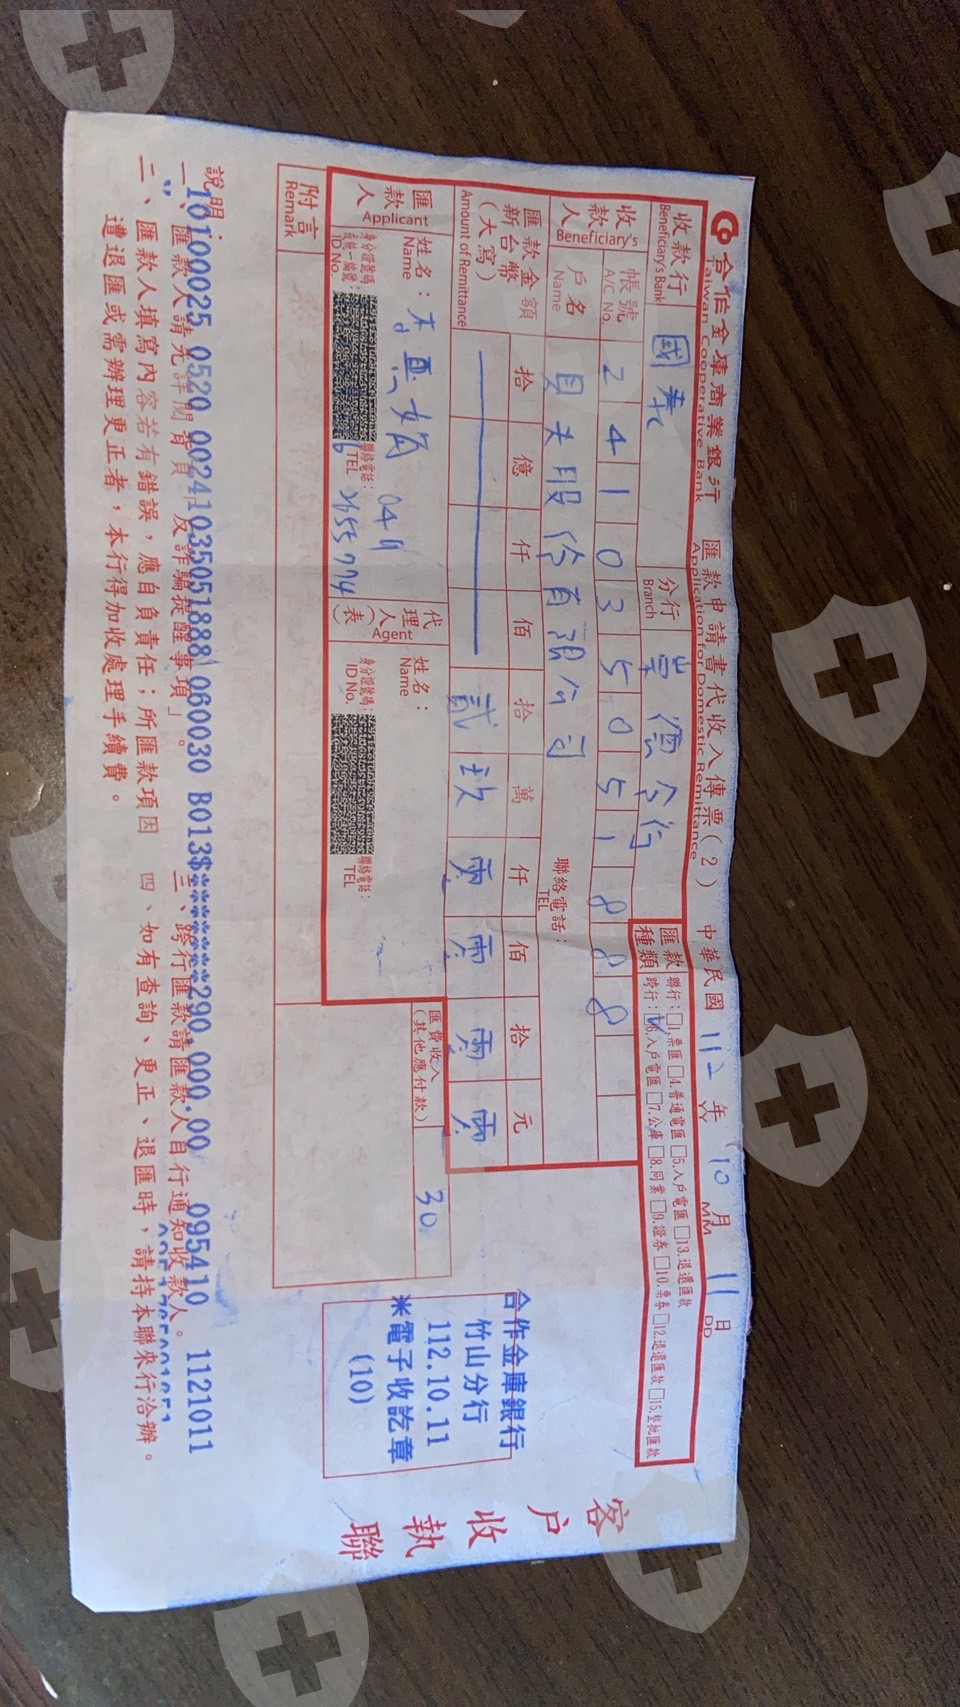 合作金庫商業銀行 匯款申請書代收入傳票(2) 中華民國 112 年 10 月 11 日
Taiwan Cooperative Bank Application for Domestic Remittance YY MM DD
收款行 國泰 分行 崇德分行
Beneficiary's Bank Branch
匯款種類
聯行:□1.票匯 □4.普通電匯 □5.入戶電匯 □13.退還匯款
跨行:☑6.入戶電匯 □7.公庫 □8.同業 □9.證券 □10.票券 □12.退還匯款 □15.整批匯款
收款人 Beneficiary's
帳號 A/C No. 2 4 1 0 3 5 0 5 1 8 8 8
戶名 Name 股份有限公司
聯絡電話: TEL
匯款金額 新台幣 (大寫) Amount of Remittance
拾 億 仟 佰 拾 萬 仟 佰 拾 元
貳 玖 零 零 零 零
匯款人 Applicant
姓名: Name 李
身分證號碼 或統一編號: ID No.
聯絡電話: TEL 049 2655774
代理人(代表) Agent
姓名: Name
身分證號碼: ID No.
聯絡電話: TEL
匯費收入 (其他應付款) 30
附言 Remark
合作金庫銀行
竹山分行
112.10.11
※電子收訖章
(10)
客戶收執聯
說明:
10100025 0520 0024103505188 060030 B013$*******290,000.00 095410 1121011
一、匯款人請先詳閱背頁「 及詐騙提醒事項」。
二、匯款人填寫內容若有錯誤,應自負責任;所匯款項因
遭退匯或需辦理更正者,本行得加收處理手續費。
三、跨行匯款請匯款人自行通知收款人。
四、如有查詢、更正、退匯時,請持本聯來行洽辦。